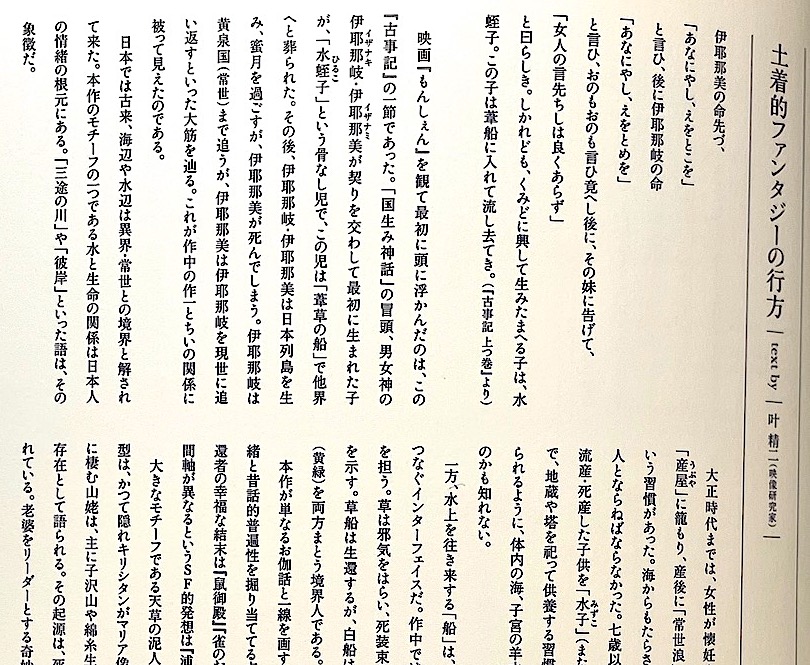 土着的ファンタジーの行方 | text by | 叶 精二（映像研究家）|
伊耶那美の命先づ、
「あなにやし、えをとこを」
と言ひ、後に伊耶那岐の命
「あなにやし、えをとめを」
と言ひ、おのもおのも言ひ竟へし後に、その妹に告げて、
「女人の言先ちしは良くあらず」
と曰らしき。しかれども、くみどに興して生みたまへる子は、水
蛭子。この子は葦船に入れて流し去てき。（『古事記 上つ巻』より）
映画『もんしぇん』を観て最初に頭に浮かんだのは、この
『古事記』の一節であった。「国生み神話」の冒頭、男女神の
伊耶那岐・伊耶那美が契りを交わして最初に生まれた子
が、「水蛭子」という骨なし児で、この児は「葦草の船」で他界
へと葬られた。その後、伊耶那岐・伊耶那美は日本列島を生
み、蜜月を過ごすが、伊耶那美が死んでしまう。伊耶那岐は
黄泉国（常世）まで追うが、伊耶那美は伊耶那岐を現世に追
い返すといった大筋を辿る。これが作中の作一とちいの関係に
被って見えたのである。
日本では古来、海辺や水辺は異界・常世との境界と解され
て来た。本作のモチーフの一つである水と生命の関係は日本人
の情緒の根元にある。「三途の川」や「彼岸」といった語は、その
象徴だ。
大正時代までは、女性が懐妊
「産屋」に籠もり、産後に「常世浪
いう習慣があった。海からもたらさ
人とならねばならなかった。七歳以
流産・死産した子供を「水子」（また
で、地蔵や塔を祀って供養する習慣
られるように、体内の海、子宮の羊水
のかも知れない。
一方、水上を往き来する「船」は、
つなぐインターフェイスだ。作中では
を担う。草は邪気をはらい、死装束
を示す。草船は生還するが、白船は
（黄緑）を両方まとう境界人である。
本作が単なるお伽話と一線を画す
緒と昔話的普遍性を掘り当ててる
還者の幸福な結末は『鼠御殿』『雀のお
間軸が異なるというSF的発想は『浦
大きなモチーフである天草の泥人
型は、かつて隠れキリシタンがマリア像
に棲む山姥は、主に子沢山や綿糸生
存在として語られる。その起源は、死
れている。老婆をリーダーとする奇妙